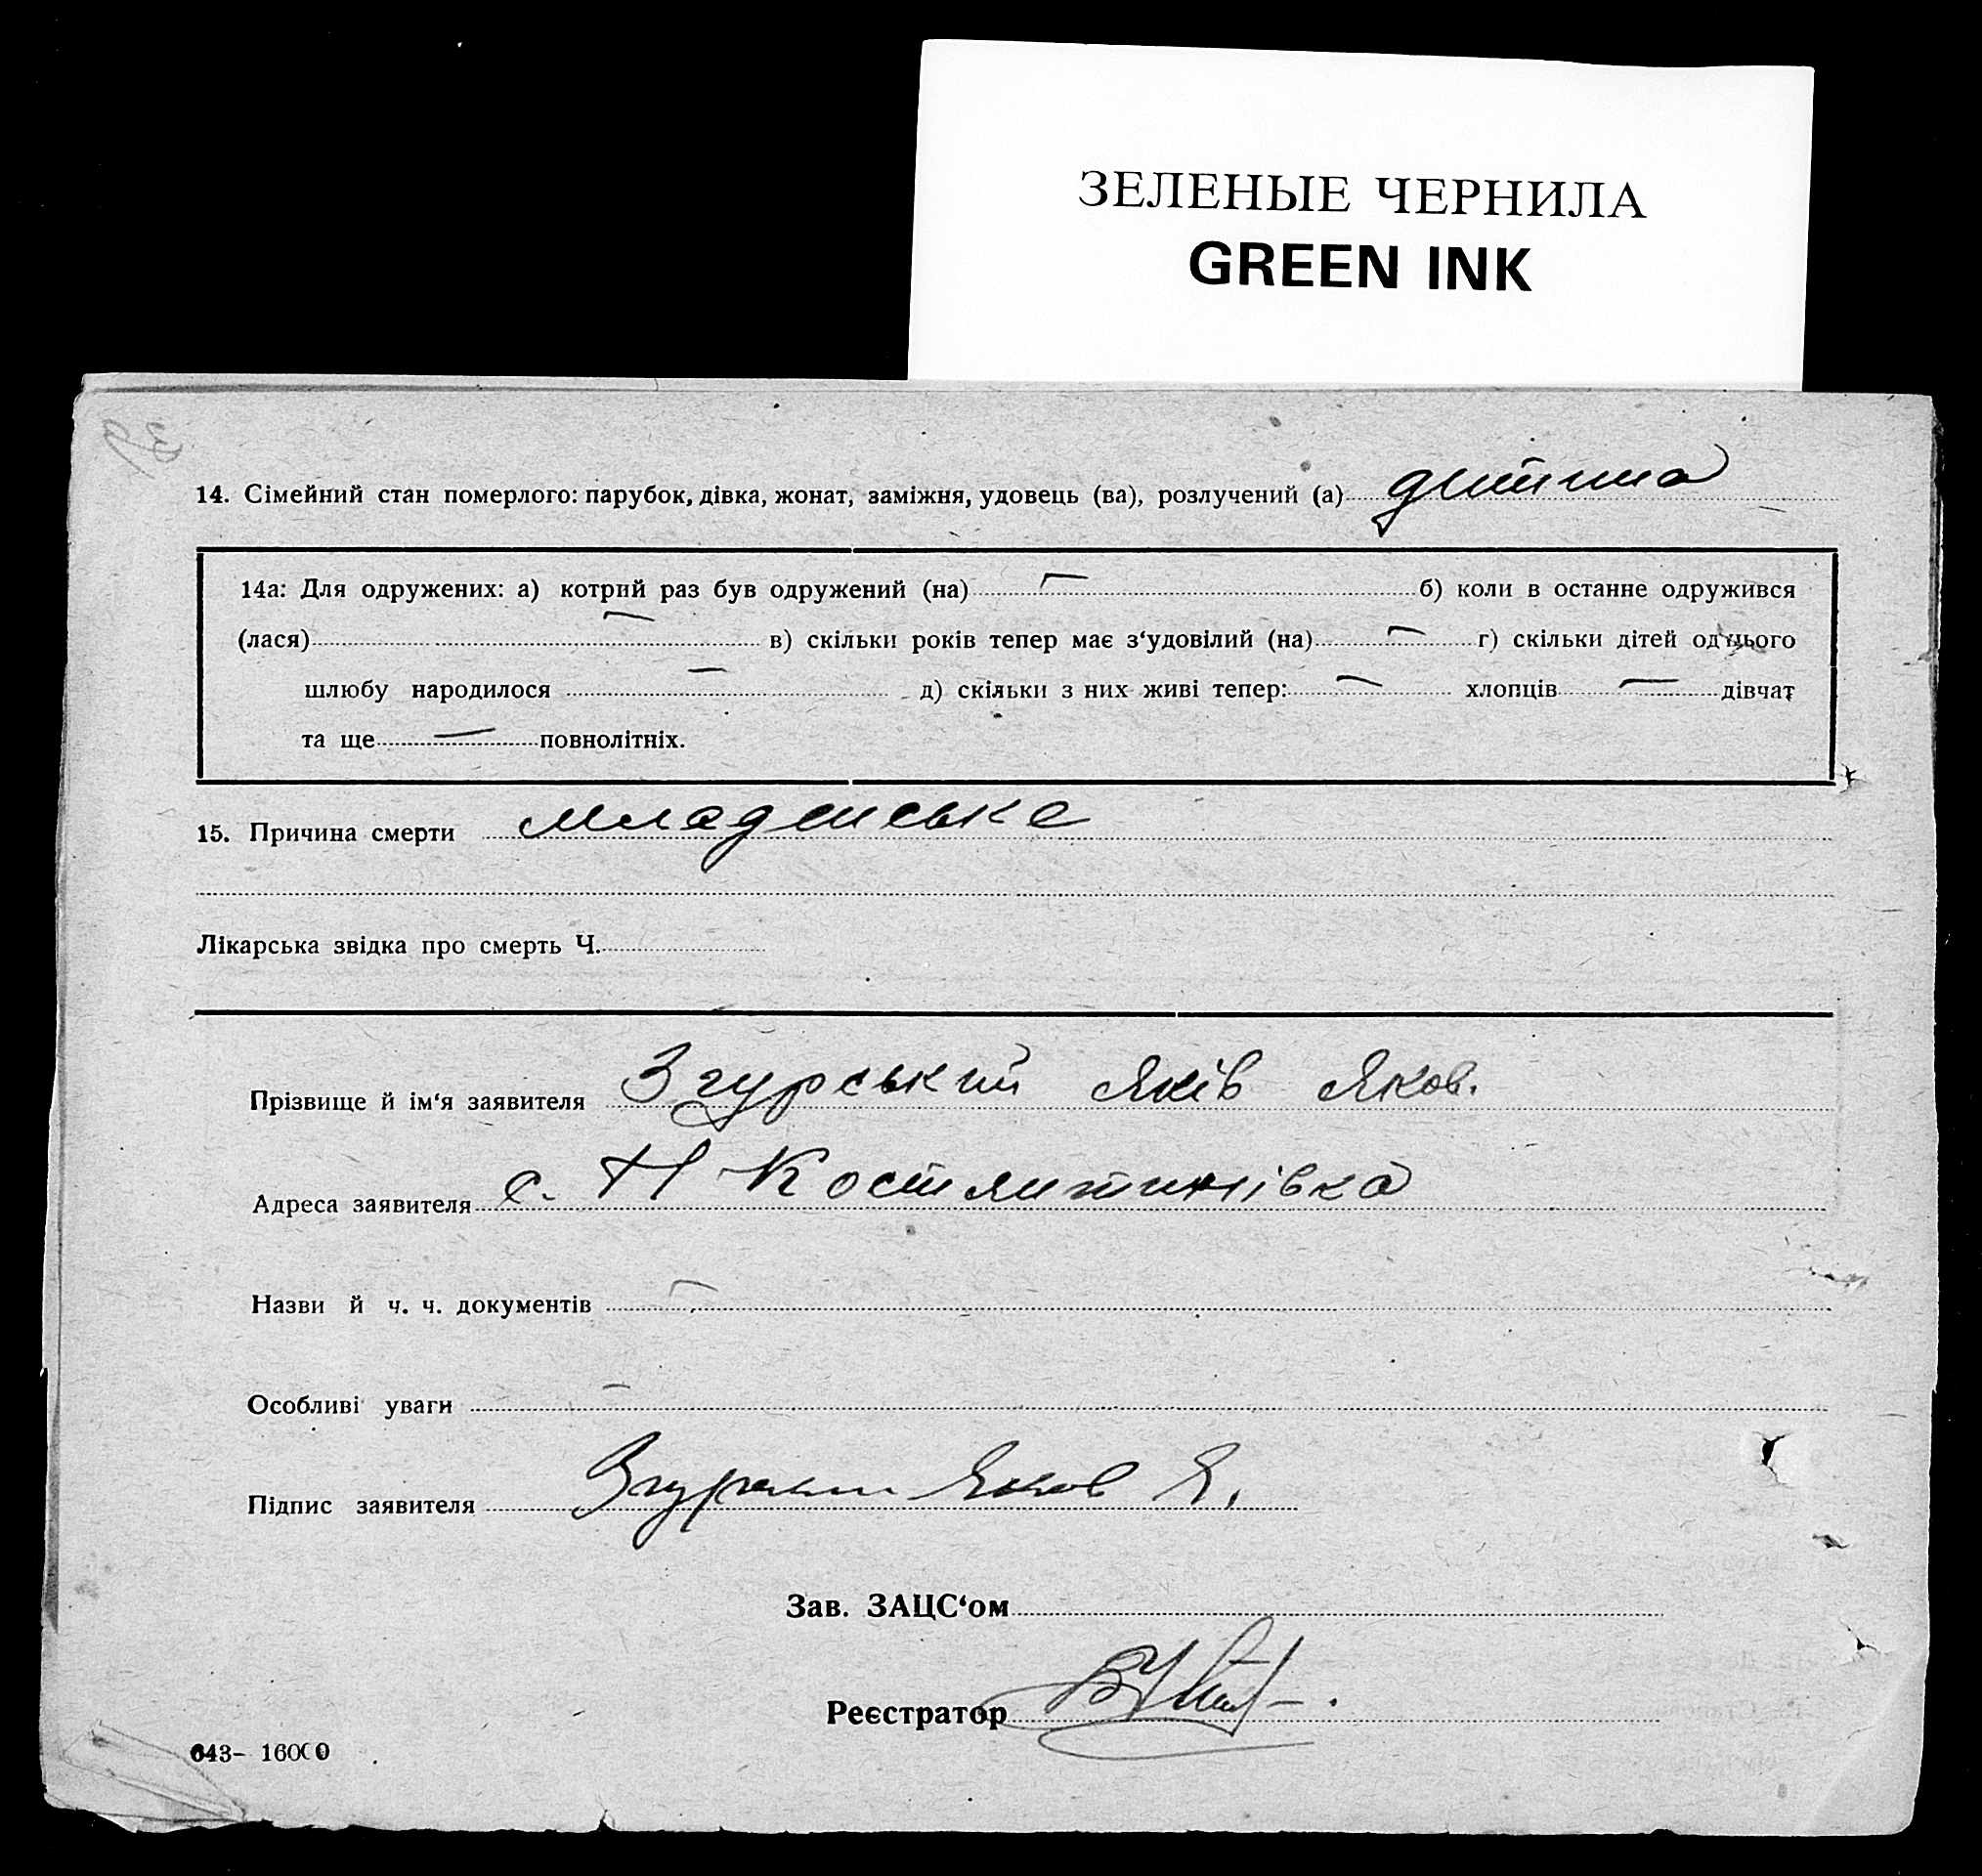 ЗЕЛЕНЫЕ ЧЕРНИЛА
GREEN INK
14. Сімейний стан померлого: парубок, дівка, жонат, заміжня, удовець (ва), розлучений (а) дитина
14а: Для одружених: а) котрий раз був одружений (на) — б) коли в останне одружився
(лася) — в) скільки років тепер має з‘удовілий (на) — г) скільки дітей од цього
шлюбу народилося — д) скільки з них живі тепер: — хлопців — дівчат
та ще — повнолітніх.
15. Причина смерти младенське
Лікарська звідка про смерть Ч.
Прізвище й ім‘я заявителя Згурський Яків Яков.
Адреса заявителя с. Н Костянтинівка
Назви й ч. ч. документів —
Особливі уваги —
Підпис заявителя Згурский Яков Я.
Зав. ЗАЦС‘ом
Реєстратор
643- 16000